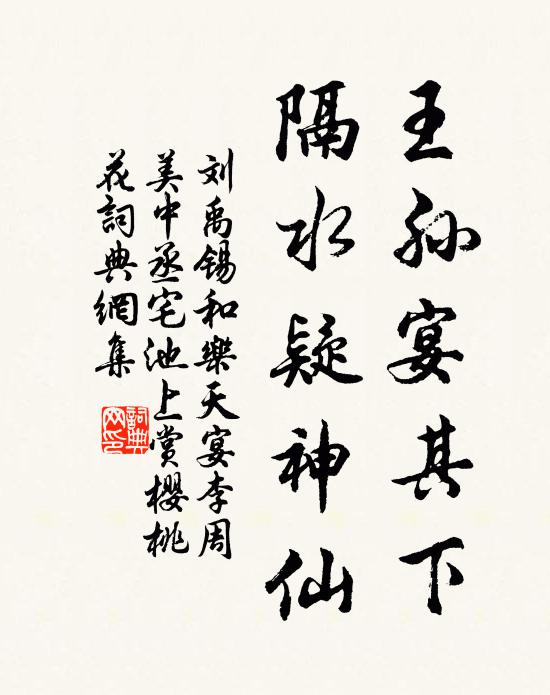 王孙宴其下
隔水疑神仙
刘禹锡和樂天宴李周
美中丞宅池上赏櫻桃
花詞典網集
詞典
网印